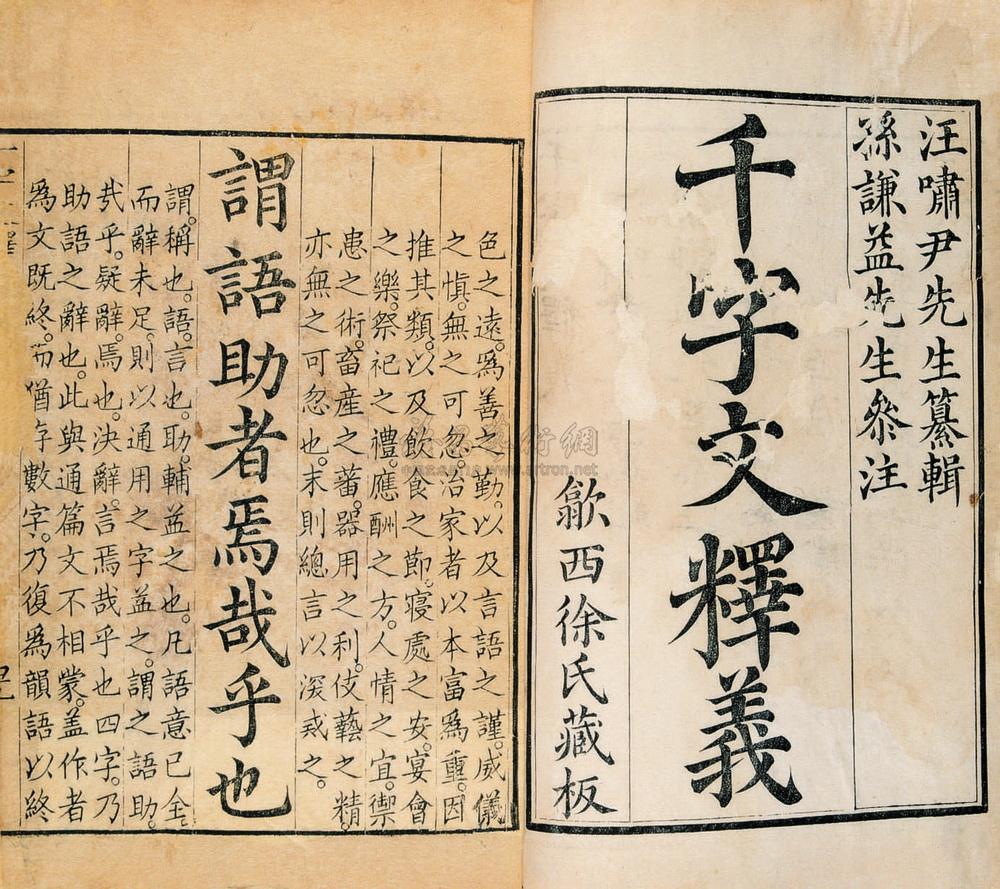 汪嘯尹先生纂輯
孫謙益先生參注
千字文釋義
歙西徐氏藏板
色之遠。爲善之勤。以及言語之謹。威儀
之慎。無之可忽。治家者以本富爲重。因
推其類。以及飲食之節。寢處之安。宴會
之樂。祭祀之禮。應酬之方。人情之宜。禦
患之術。畜產之蕃。器用之利。伎藝之精。
亦無之可忽也。末則總言以深戒之。
謂語助者焉哉乎也
謂。稱也。語。言也。助。輔益之也。凡語意已全。
而辭未足。則以通用之字益之。謂之語助。
哉乎。疑辭。焉也。決辭。言焉哉乎也四字。乃
助語之辭也。此與通篇文不相蒙。蓋作者
爲文既終。而猶存數字。乃復爲韻語以終
www.artron.net